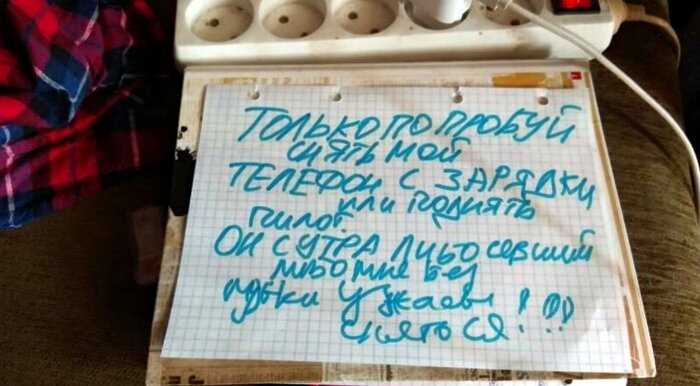 ТОЛЬКО ПОПРОБУЙ
СНЯТЬ МОЙ
ТЕЛЕФОН С ЗАРЯДКИ
ИЛИ ПОДНЯТЬ
ПИЛОТ
ОН С УТРА ЛИБО севший
либо мне без
ужасы
снятся!!!!